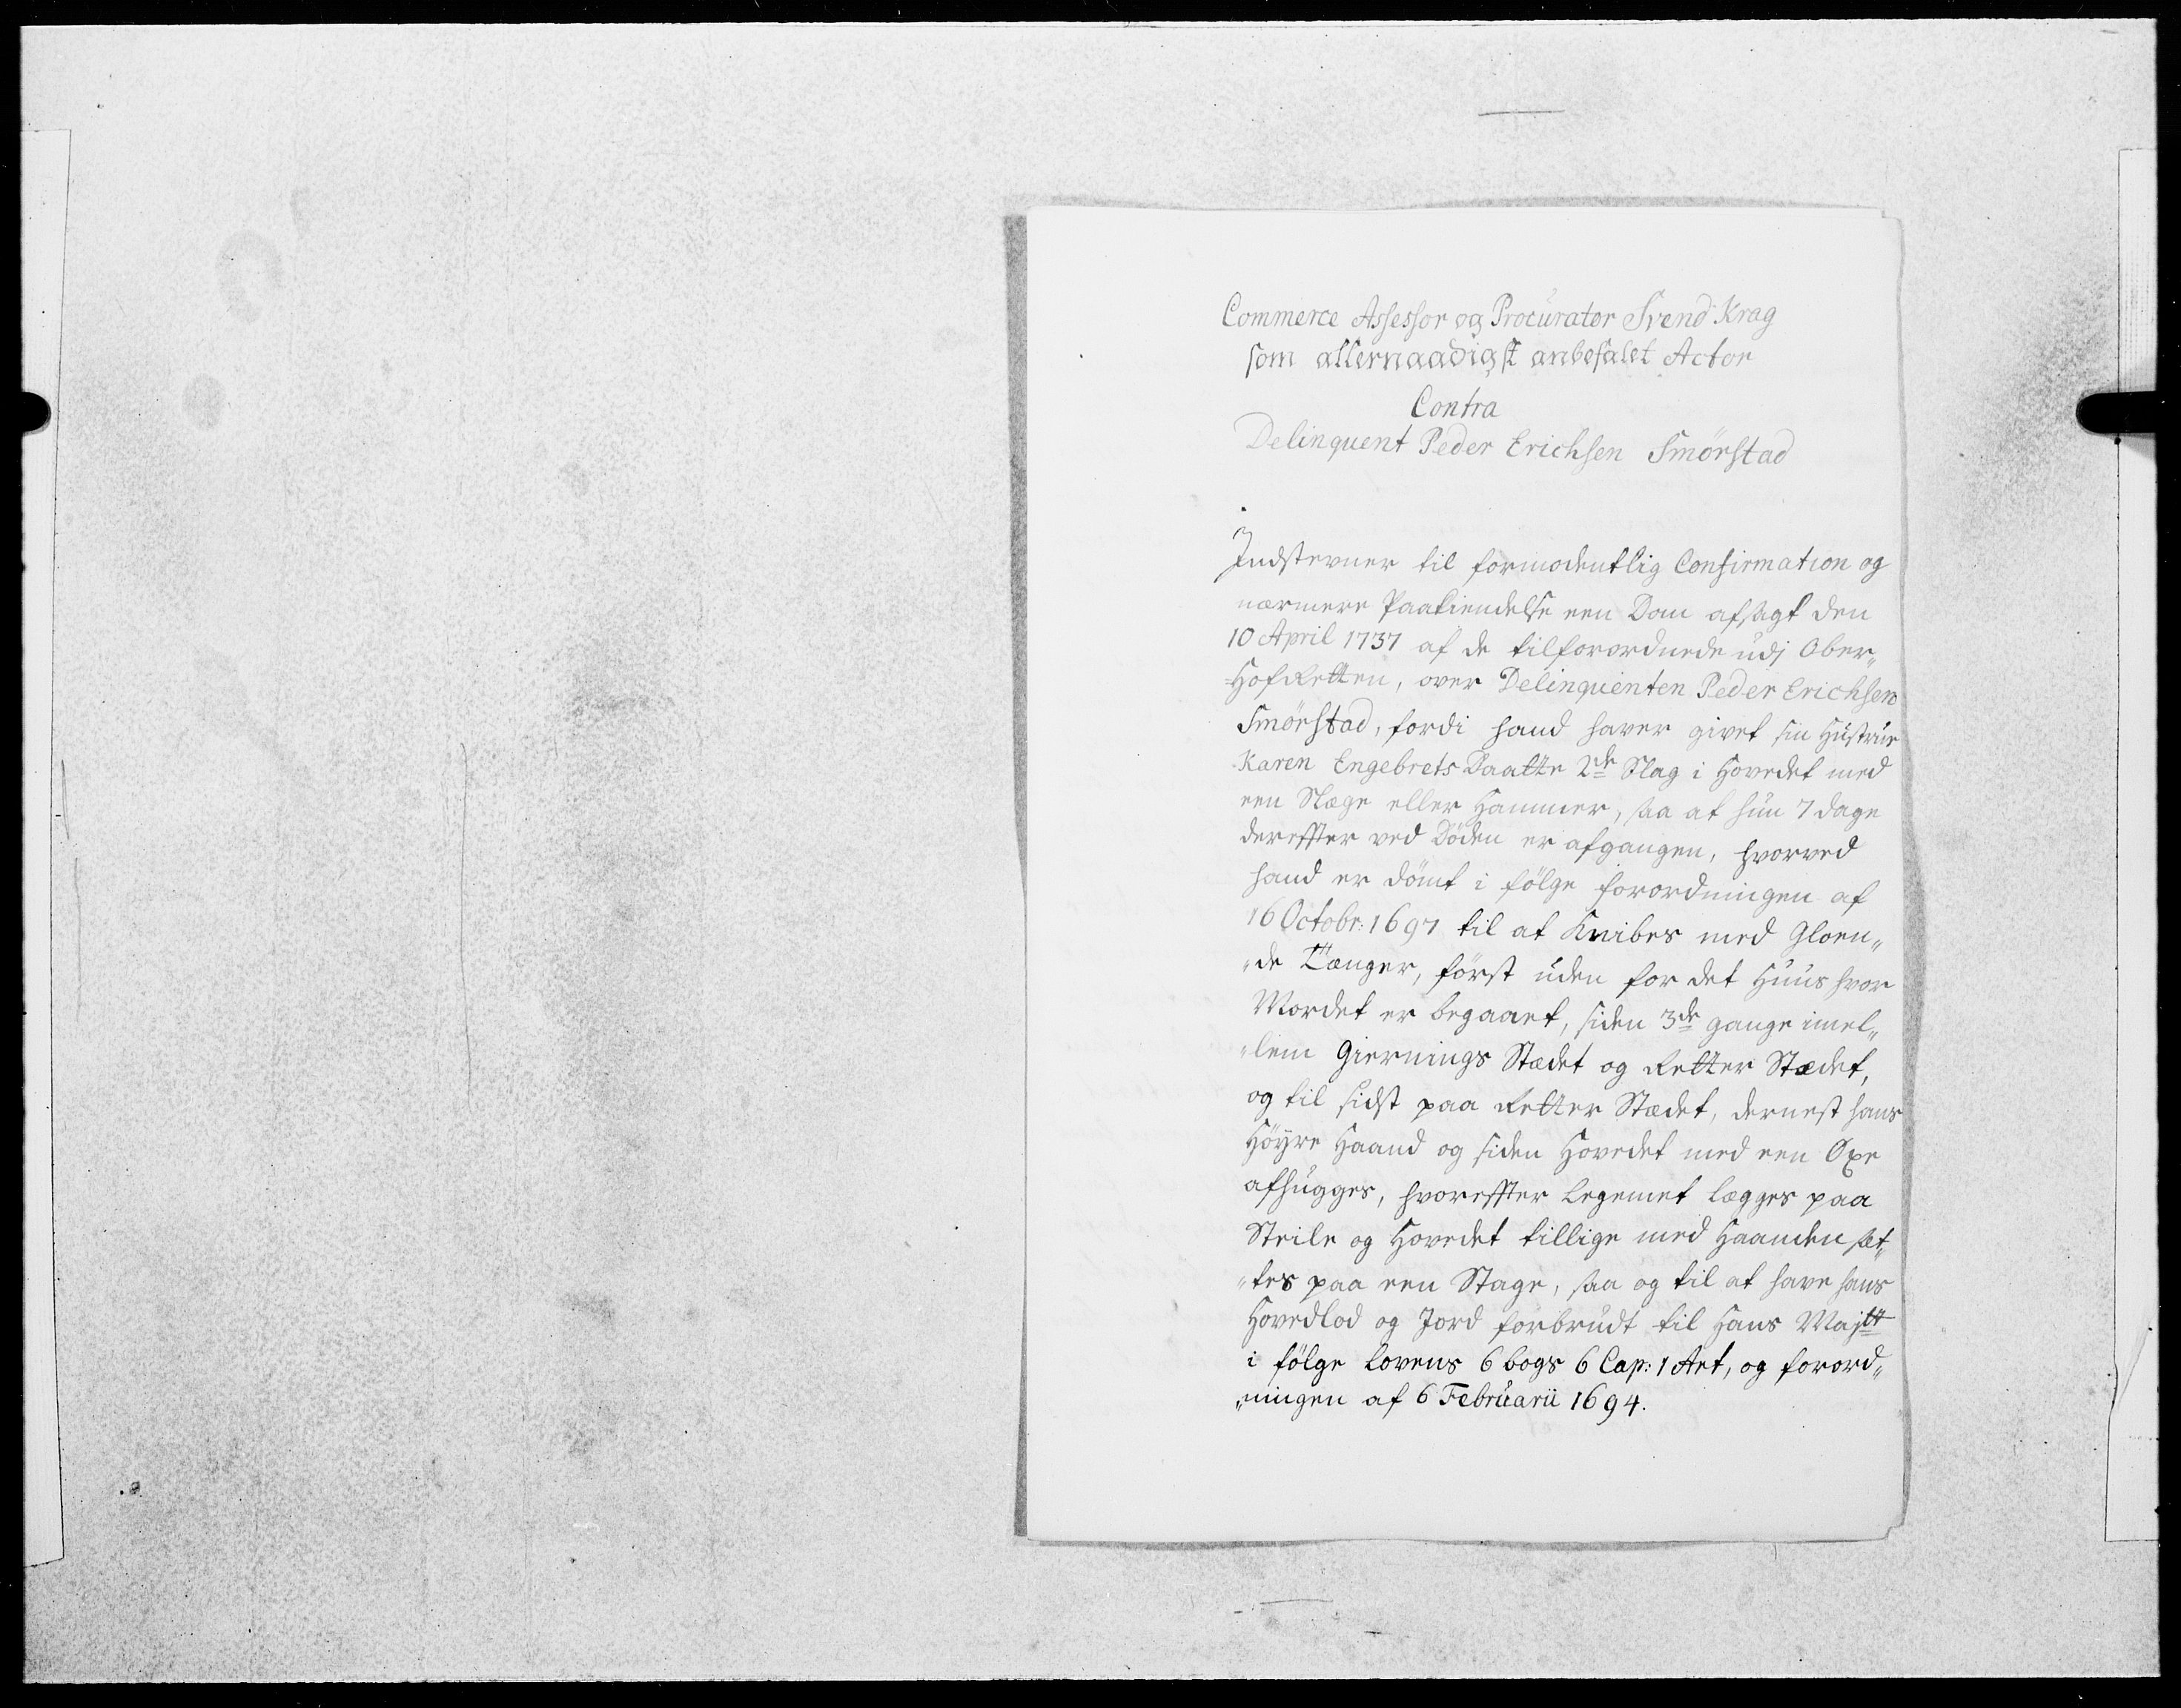 Commerce Assessor og Procurator Svend Krag
som allernaadigst anbefalet Actor
Contra
Delinquent Peder Erichsen Smörstad
Indstevner til formodentlig Confirmation og
nærmere Paakiendelse een Dom afsagt den
10 April 1737 af de tilforordnede udj Ober„
HofRetten, over Delinquenten Peder Erichsen
Smörstad, fordi hand haver givet sin Hustrue
Karen Engebrets Daatter 2de Slag i Hovedet med
een Slæge eller Hammer, saa at hun 7 dage
dereffter ved Döden er afgangen, hvorved
hand er dömt i fölge forordningen af
16 Octobr: 1697 til at Knibes med Gloen„
„de Tænger, först uden for det Huus hvor
Mordet er begaaet, siden 3de gange imel„
„lem Giernings Stædet og Retter Stædet,
og til sidst paa Retter Stædet, dernest hans
Höyre Haand og siden Hovedet med een Öxe
afhugges, hvoreffter Legemet lægges paa
Steile og Hovedet tillige med Haanden sæt„
„tes paa een Stage, saa og til at have hans
Hovedlod og Jord forbrudt til Hans Majtt
i fölge Lovens 6 bogs 6 Cap: 1 Art, og forord„
„ningen af 6 Februarii 1694.